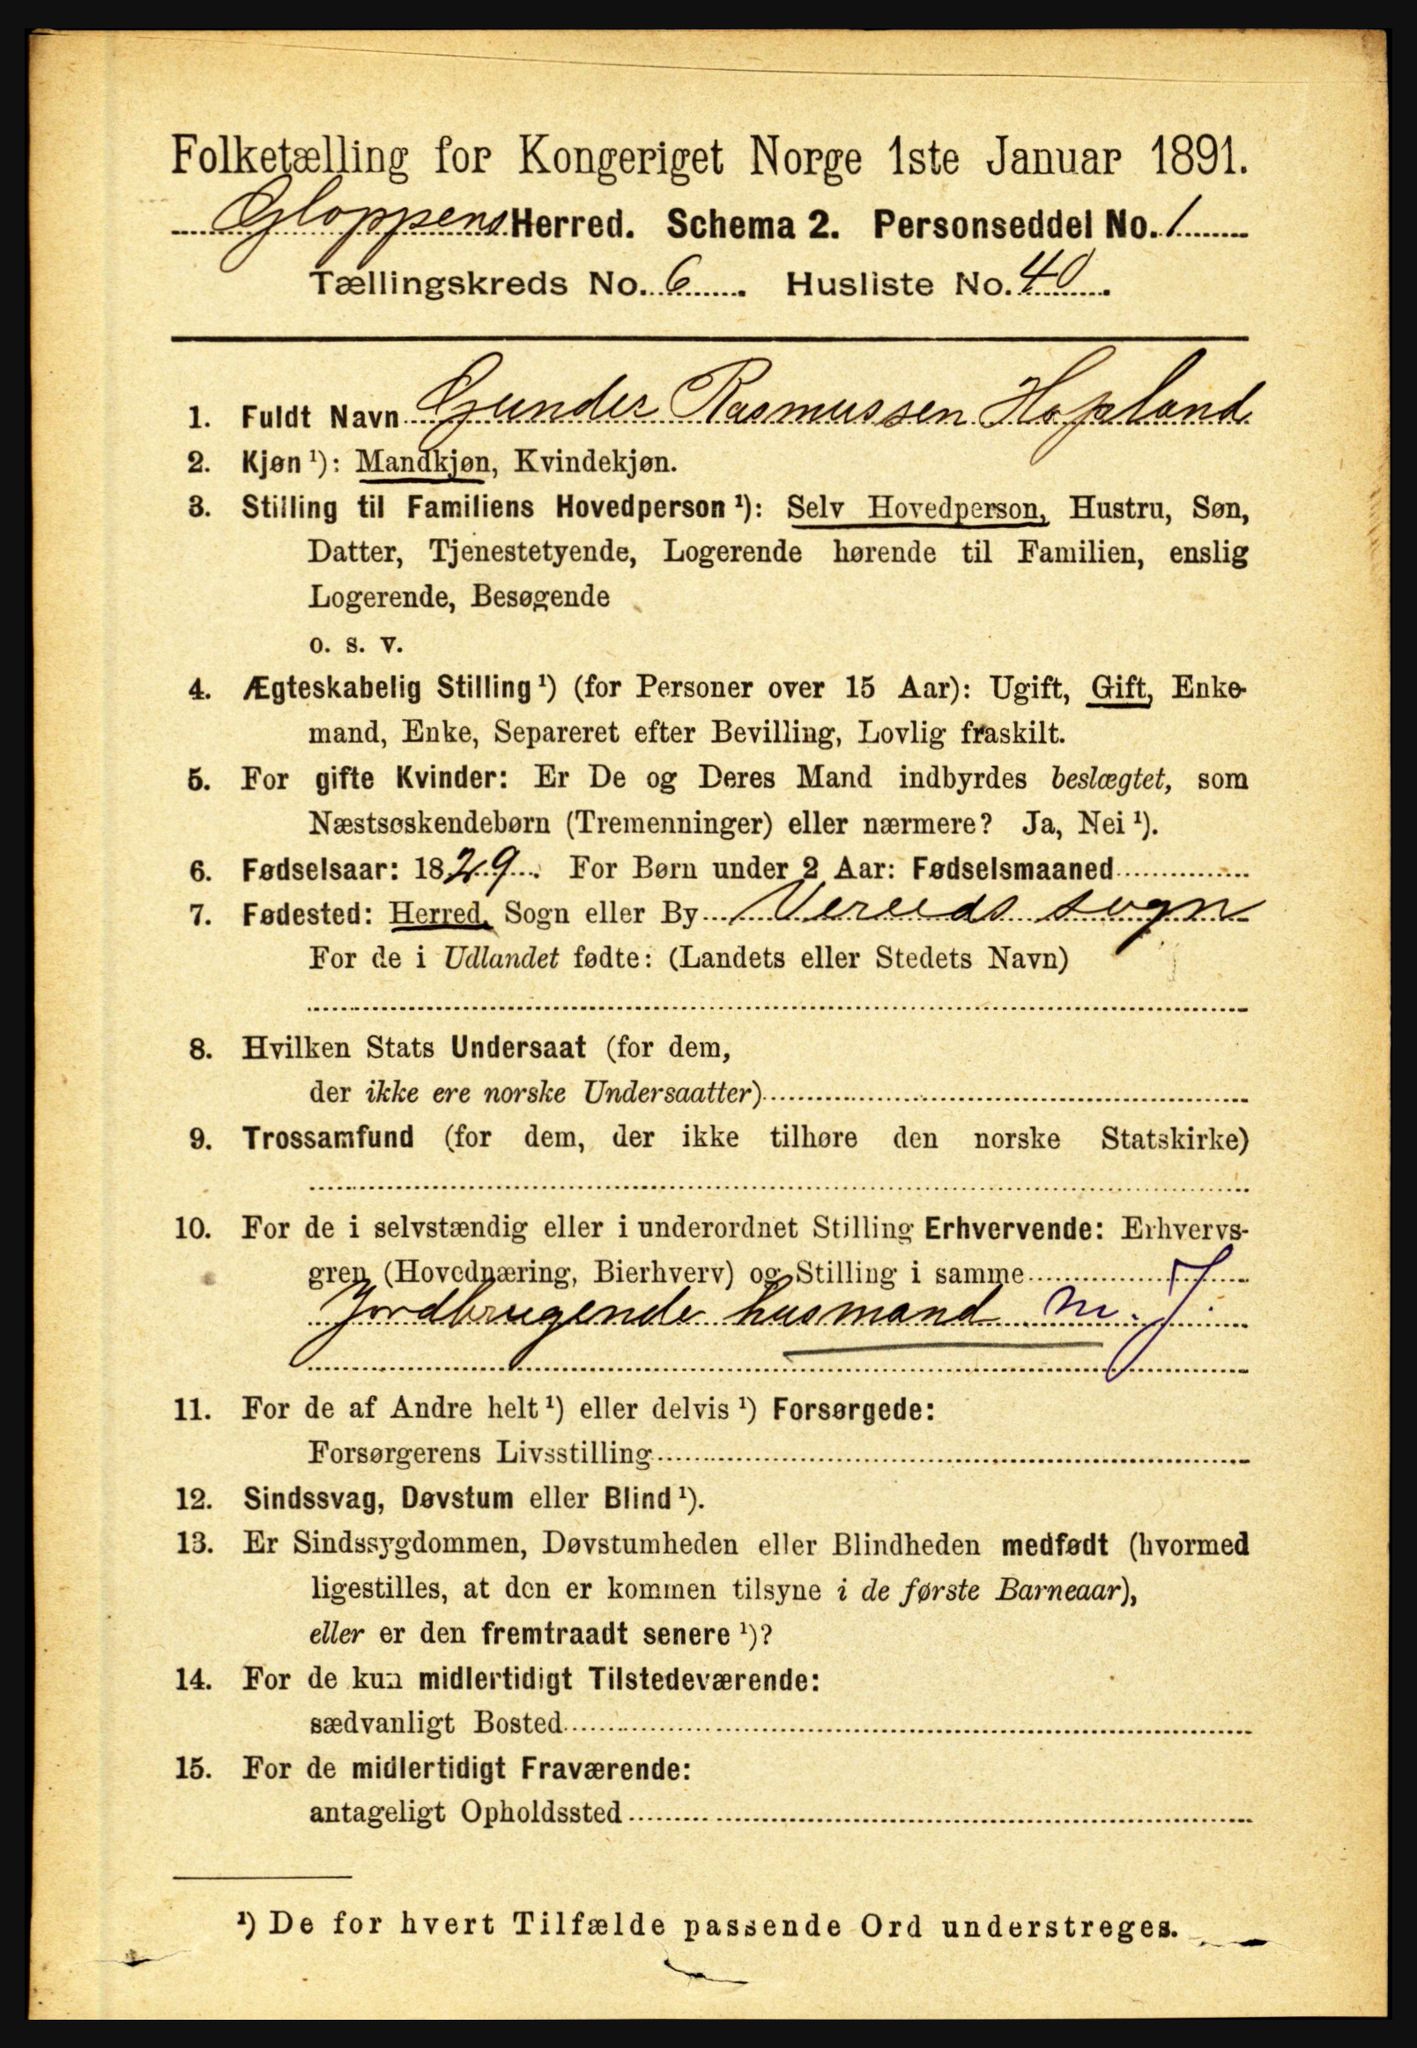 Folketælling for Kongeriget Norge 1ste Januar 1891.
Gloppens Herred. Schema 2. Personseddel No. 1
Tællingskreds No. 6. Husliste No. 40.
1. Fuldt Navn Gunder Rasmussen Hopland
2. Kjøn ¹): Mandkjøn, Kvindekjøn.
3. Stilling til Familiens Hovedperson ¹): Selv Hovedperson, Hustru, Søn,
Datter, Tjenestetyende, Logerende hørende til Familien, enslig
Logerende, Besøgende
o. s. v.
4. Ægteskabelig Stilling ¹) (for Personer over 15 Aar): Ugift, Gift, Enke-
mand, Enke, Separeret efter Bevilling, Lovlig fraskilt.
5. For gifte Kvinder: Er De og Deres Mand indbyrdes beslægtet, som
Næstsøskendebørn (Tremenninger) eller nærmere? Ja, Nei ¹).
6. Fødselsaar: 1829. For Børn under 2 Aar: Fødselsmaaned
7. Fødested: Herred, Sogn eller By Vereids sogn
For de i Udlandet fødte: (Landets eller Stedets Navn)
8. Hvilken Stats Undersaat (for dem,
der ikke ere norske Undersaatter)
9. Trossamfund (for dem, der ikke tilhøre den norske Statskirke)
10. For de i selvstændig eller i underordnet Stilling Erhvervende: Erhvervs-
gren (Hovednæring, Bierhverv) og Stilling i samme
Jordbrugende husmand m. J.
11. For de af Andre helt ¹) eller delvis ¹) Forsørgede:
Forsørgerens Livsstilling
12. Sindssvag, Døvstum eller Blind ¹).
13. Er Sindssygdommen, Døvstumheden eller Blindheden medfødt (hvormed
ligestilles, at den er kommen tilsyne i de første Barneaar),
eller er den fremtraadt senere ¹)?
14. For de kun midlertidigt Tilstedeværende:
sædvanligt Bosted
15. For de midlertidigt Fraværende:
antageligt Opholdssted
¹) De for hvert Tilfælde passende Ord understreges.